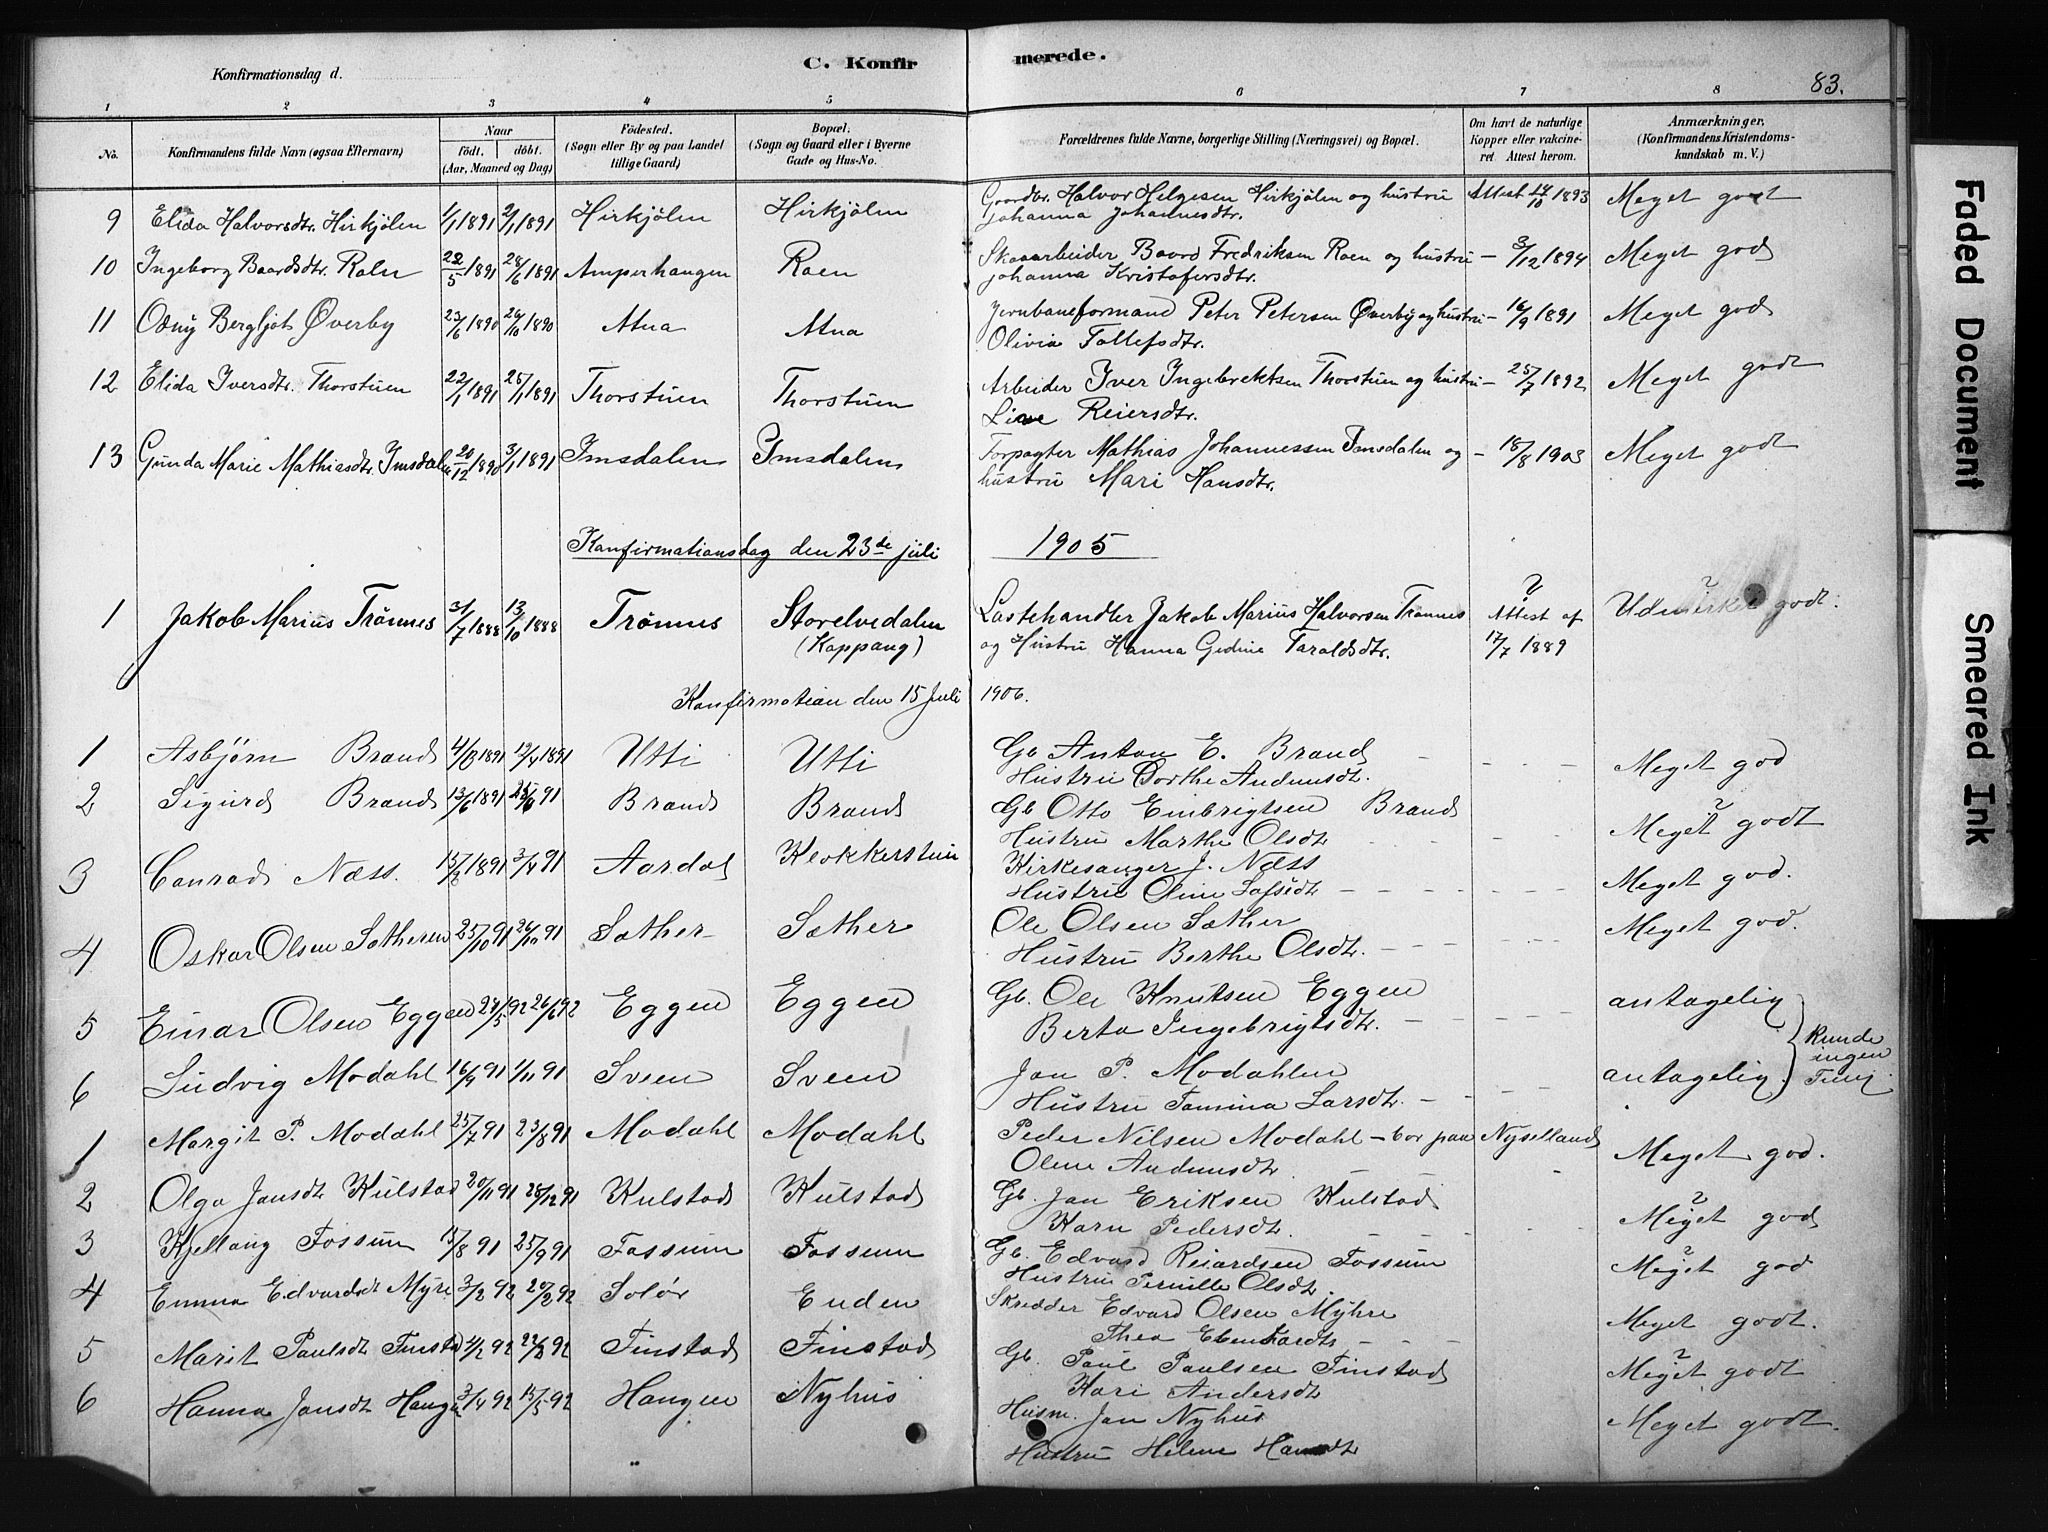 Konfirmationsdag d.
C. Konfir merede.
83.
1 2 3 4 5 6 7 8
No. Konfirmandens fulde Navn (ogsaa Efternavn) Naar födt. döbt. (Aar, Maaned og Dag)
Födested. (Sogn eller By og paa Landet tillige Gaard)
Bopæl. (Sogn og Gaard eller i Byerne Gade og Hus-No.
Forældrenes fulde Navne, borgerlige Stilling (Næringsvei) og Bopæl.
Om havt de naturlige Kopper eller vakcineret. Attest herom.
Anmærkninger. (Konfirmandens Kristendomskundskab m. V.)
9 Elida Halvorsdtr. Hirkjölen 1/1 1891 2/1 1891 Hirkjölen Hirkjölen Gaardbr. Halvor Helgesen Hirkjölen og hustru Attest 14/10 1893 Meget godt
Johanna Johannesdtr.
10 Ingeborg Baardsdtr. Roen 22/5 1891 28/6 1891 Amperhaugen Roen Skoarbeider Baard Fredriksen Roen og hustru - 3/12 1894 Meget god
Johanna Kristofersdtr.
11 Odny Bergljot Øverby 23/6 1890 26/10 1890 Atna Atna Jernbaneformand Peter Petersen Øverby og hustru - 16/9 1891 Meget god
Olivia Tollefsdtr.
12 Elida Iversdtr. Thorstuen 22/1 1891 25/1 1891 Thorstuen Thorstuen Arbeider Iver Ingebrektsen Thorstuen og hustru - 25/7 1892 Meget godt
Line Reiersdtr.
13 Gunda Marie Mathiasdtr. Imsdalen 20/12 1890 3/1 1891 Imsdalen Imsdalen Forpagter Mathias Johannessen Imsdalen og - 18/8 1903 Meget godt
hustru Mari Hansdtr.
Konfirmationsdag den 23de juli 1905
1 Jakob Marius Trønnes 31/7 1888 13/10 1888 Trønnes Storelvedalen Lastehandler Jakob Marius Halvorsen Trønnes Attest af Udmerket godt.
(Koppang) og Hustru Hanna Gedine Taraldsdtr. 17/7 1889
Konfirmation den 15 Juli 1906.
1 Asbjørn Brand 1891 12/4 1891 Utti Utti Gb Anton E. Brand Meget god
Hustru Dorthe Audunsdt.
2 Sigurd Brand 13/6 1891 91 Brand Brand Gb Otto Embrigtsen Brand Meget godt
Hustru Marthe Olsdt
3 Conrad Næss. 1891 3/4 91 Aardal Klokkerstuen Kirkesanger J. Næss Meget god.
Hustru Oline
4 Oskar Olsen Sætheren 25/10 91 26/10 91 Sæther Sæther Ole Olsen Sæther Meget god.
Hustru Berthe Olsdt.
5 Einar Olsen Eggen 24/5 92 26/6 92 Eggen Eggen Gb. Ole Knutsen Eggen antagelig
Berta Ingebrigtsdt.
kunde ingen
6 Ludvig Modahl 16/9 91 1/11 91 Sveen Sveen Jon P. Modahlen antagelig.
Hustru Tamina Larsdt.
1 Margit P. Modahl 25/7 91 23/8 91 Modahl Modahl Peder Nilsen Modahl - bor paa Nyselland Meget god.
Oline Audunsdt
2 Olga Jonsdt Kulstad 20/11 91 26/12 91 Kulstad Kulstad Gb. Jon Eriksen Kulstad Meget god
Karn Pedersdt
3 Kjellaug Fossum 15/8 91 25/9 91 Fossum Fossum Gb. Edvard Reiardsen Fossum Meget god
Hustru Pernille Olsdt.
4 Emma Edvardsdt Myre 3/2 92 20/2 92 Solør Enden Skredder Edvard Olsen Myhre Meget godt.
Thea
5 Marit Paulsdt Finstad 4/2 92 92 Finstad Finstad Gb. Paul Paulsen Finstad Meget godt
Kari Andersdt
6 Hanna Jonsdt Haugen 3/4 92 15/5 92 Haugen Nyhus Husm. Jon Nyhus Meget godt.
Hustru Helene
Faded Document
Smeared Ink